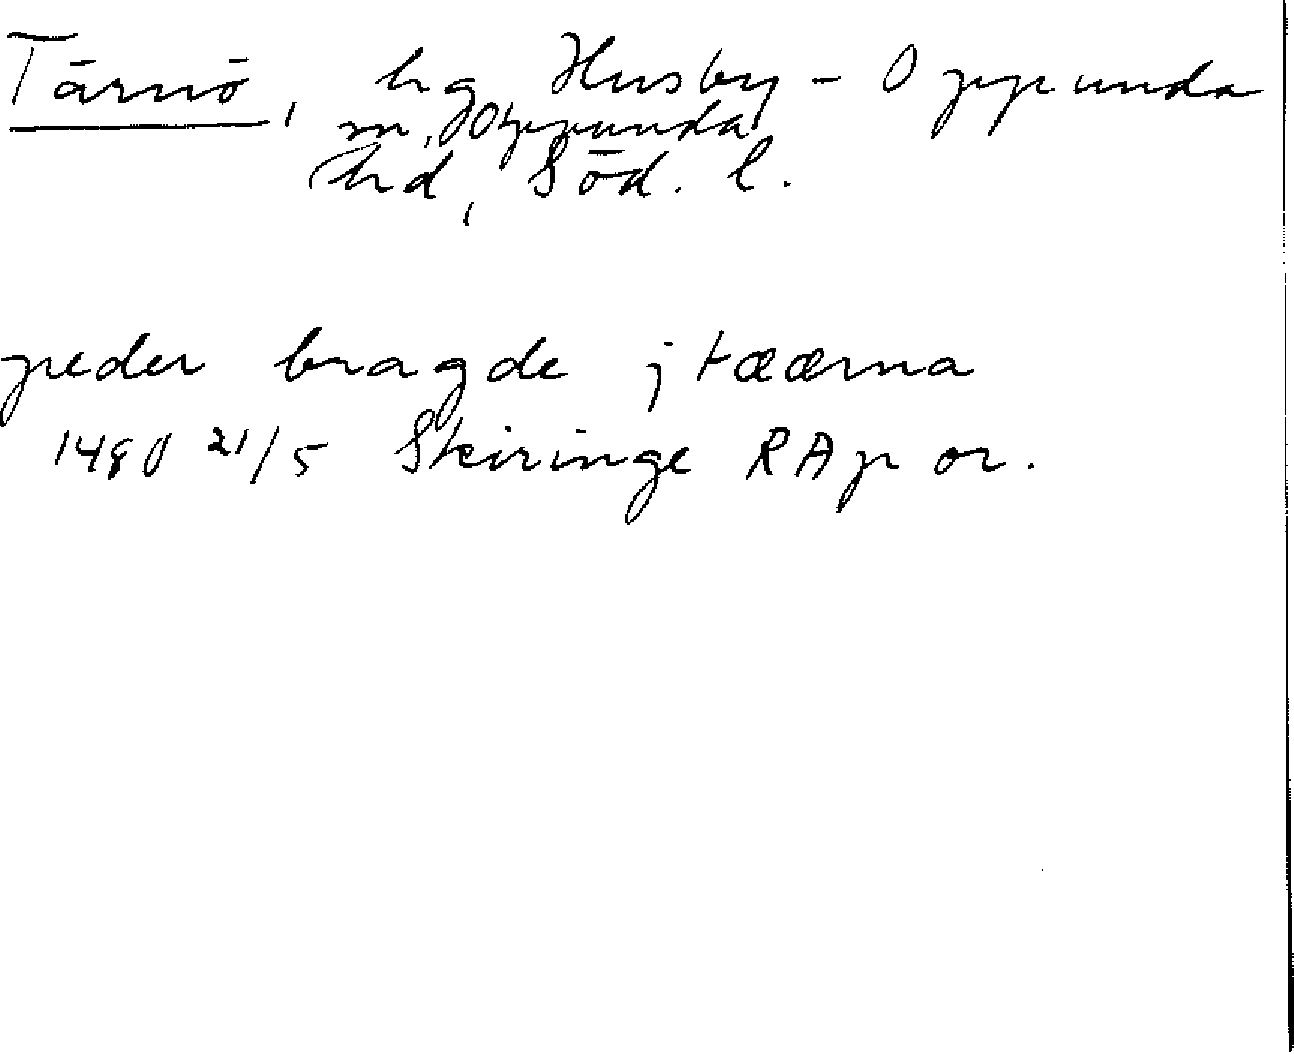 Tärnö, hg Husby-Oppunda
sn, Oppunda
hd, Söd. l.
peder bragde j tæærna
1480 21/5 Skiringe RAp or.